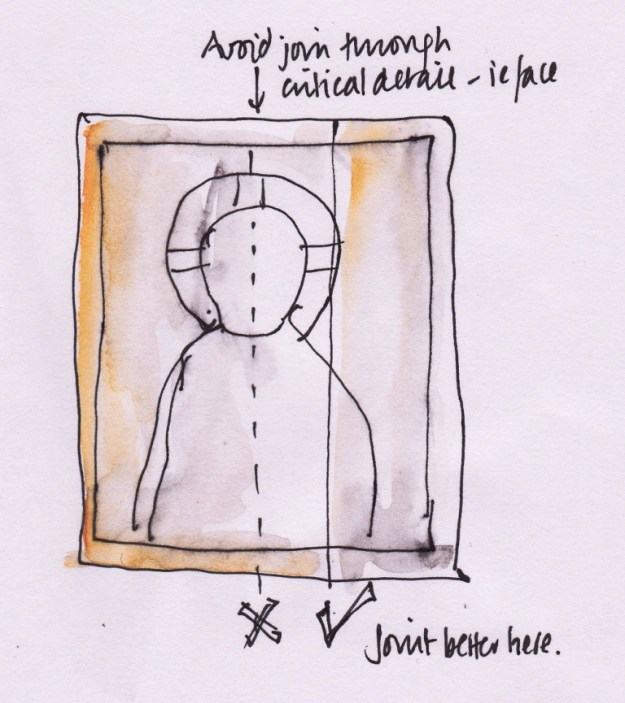 Avoid join through
critical detail - ie face
Joint better here.